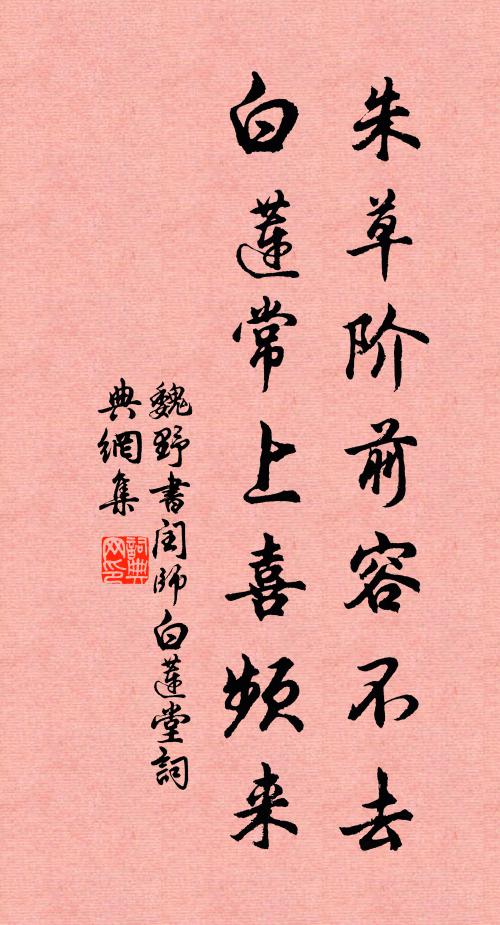 朱草阶前容不去
白蓮常上喜频来
魏野書闰師白蓮堂詞
典網集
詞典
网印